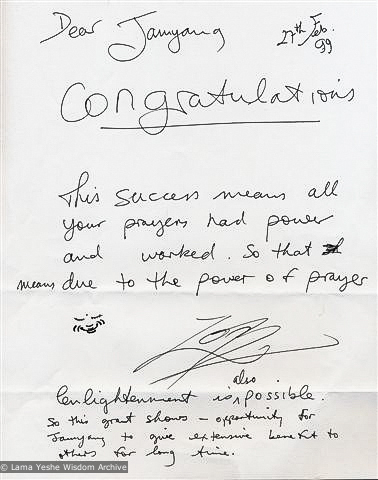 Dear Jamyang
27th Feb. 99
Congratulations
This success means all
your prayers had power
and worked. So that
means due to the power of prayer
enlightenment is also possible.
So this grant shows – opportunity for
Jamyang to give extensive benefit to
others for long time.
© Lama Yeshe Wisdom Archive